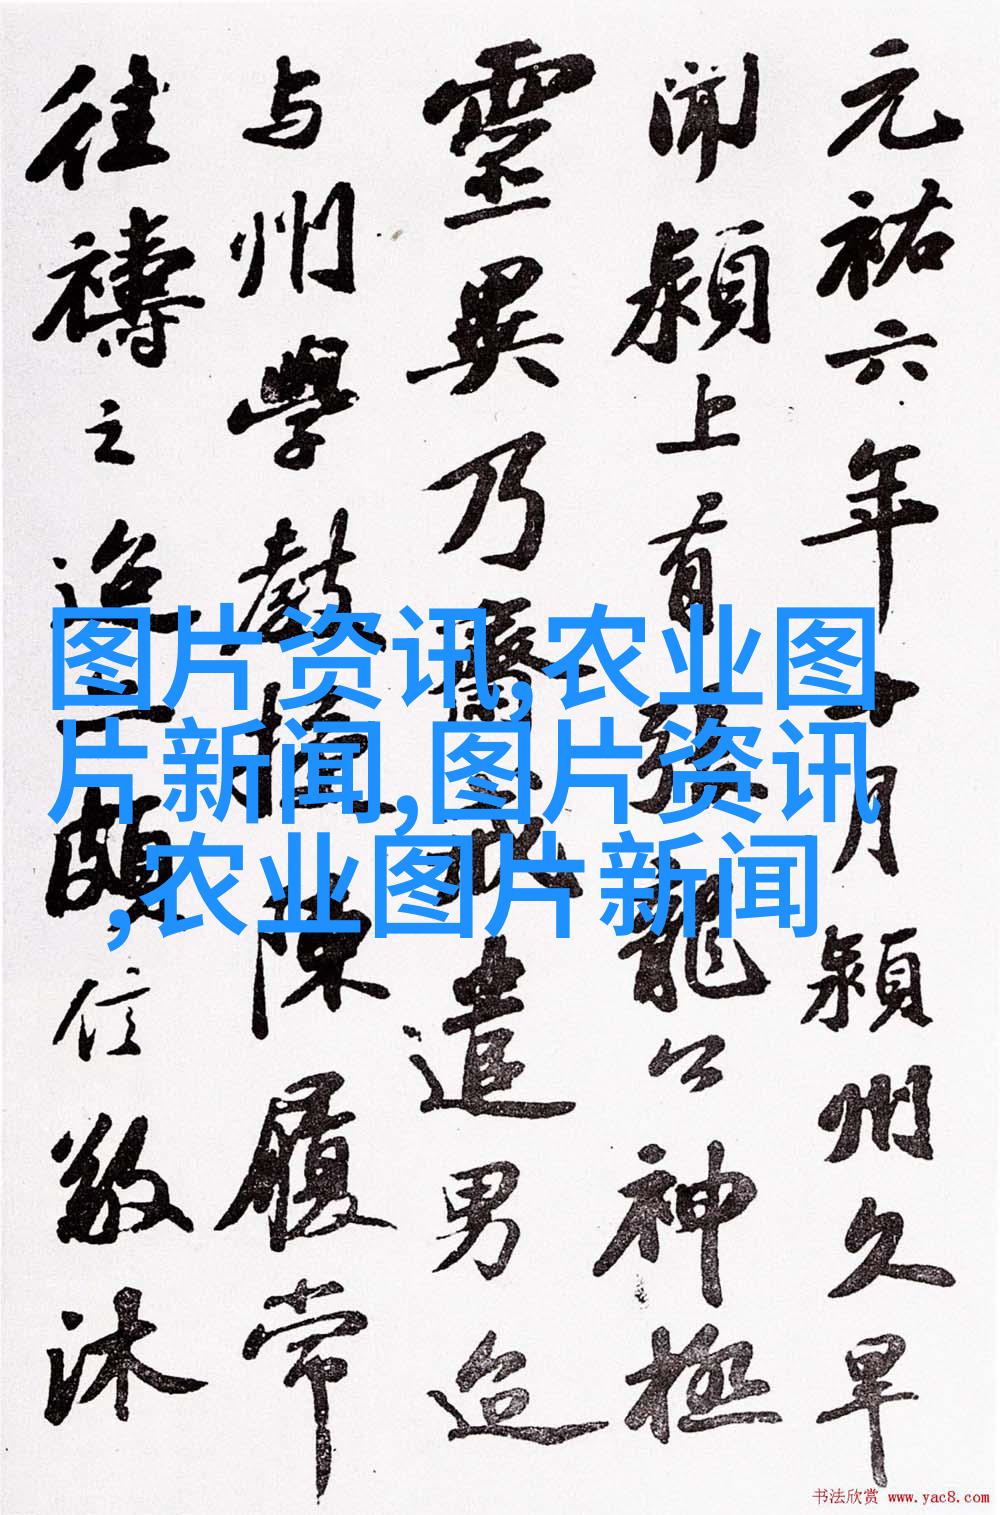 元祐六年十月潁州久旱
聞潁上有張龍公神極
靈異乃齋戒遣男迨
与州學教授陳履常
往禱之迨亦頗信敬沐
图片资讯,农业图
片新闻,图片资讯
,农业图片新闻
书法欣赏 www.yac8.com